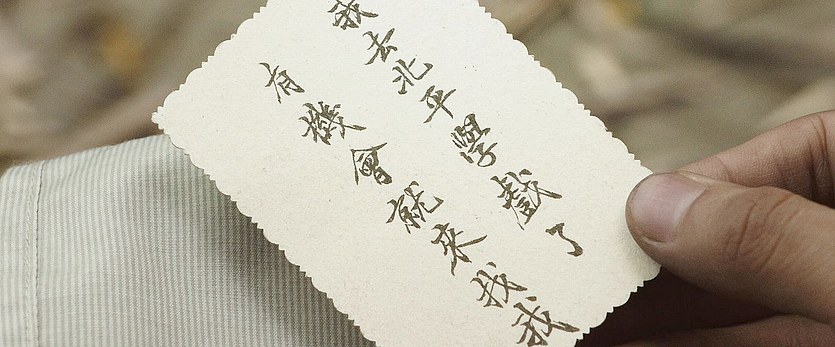 我去北平學戲了
有機會就來找我